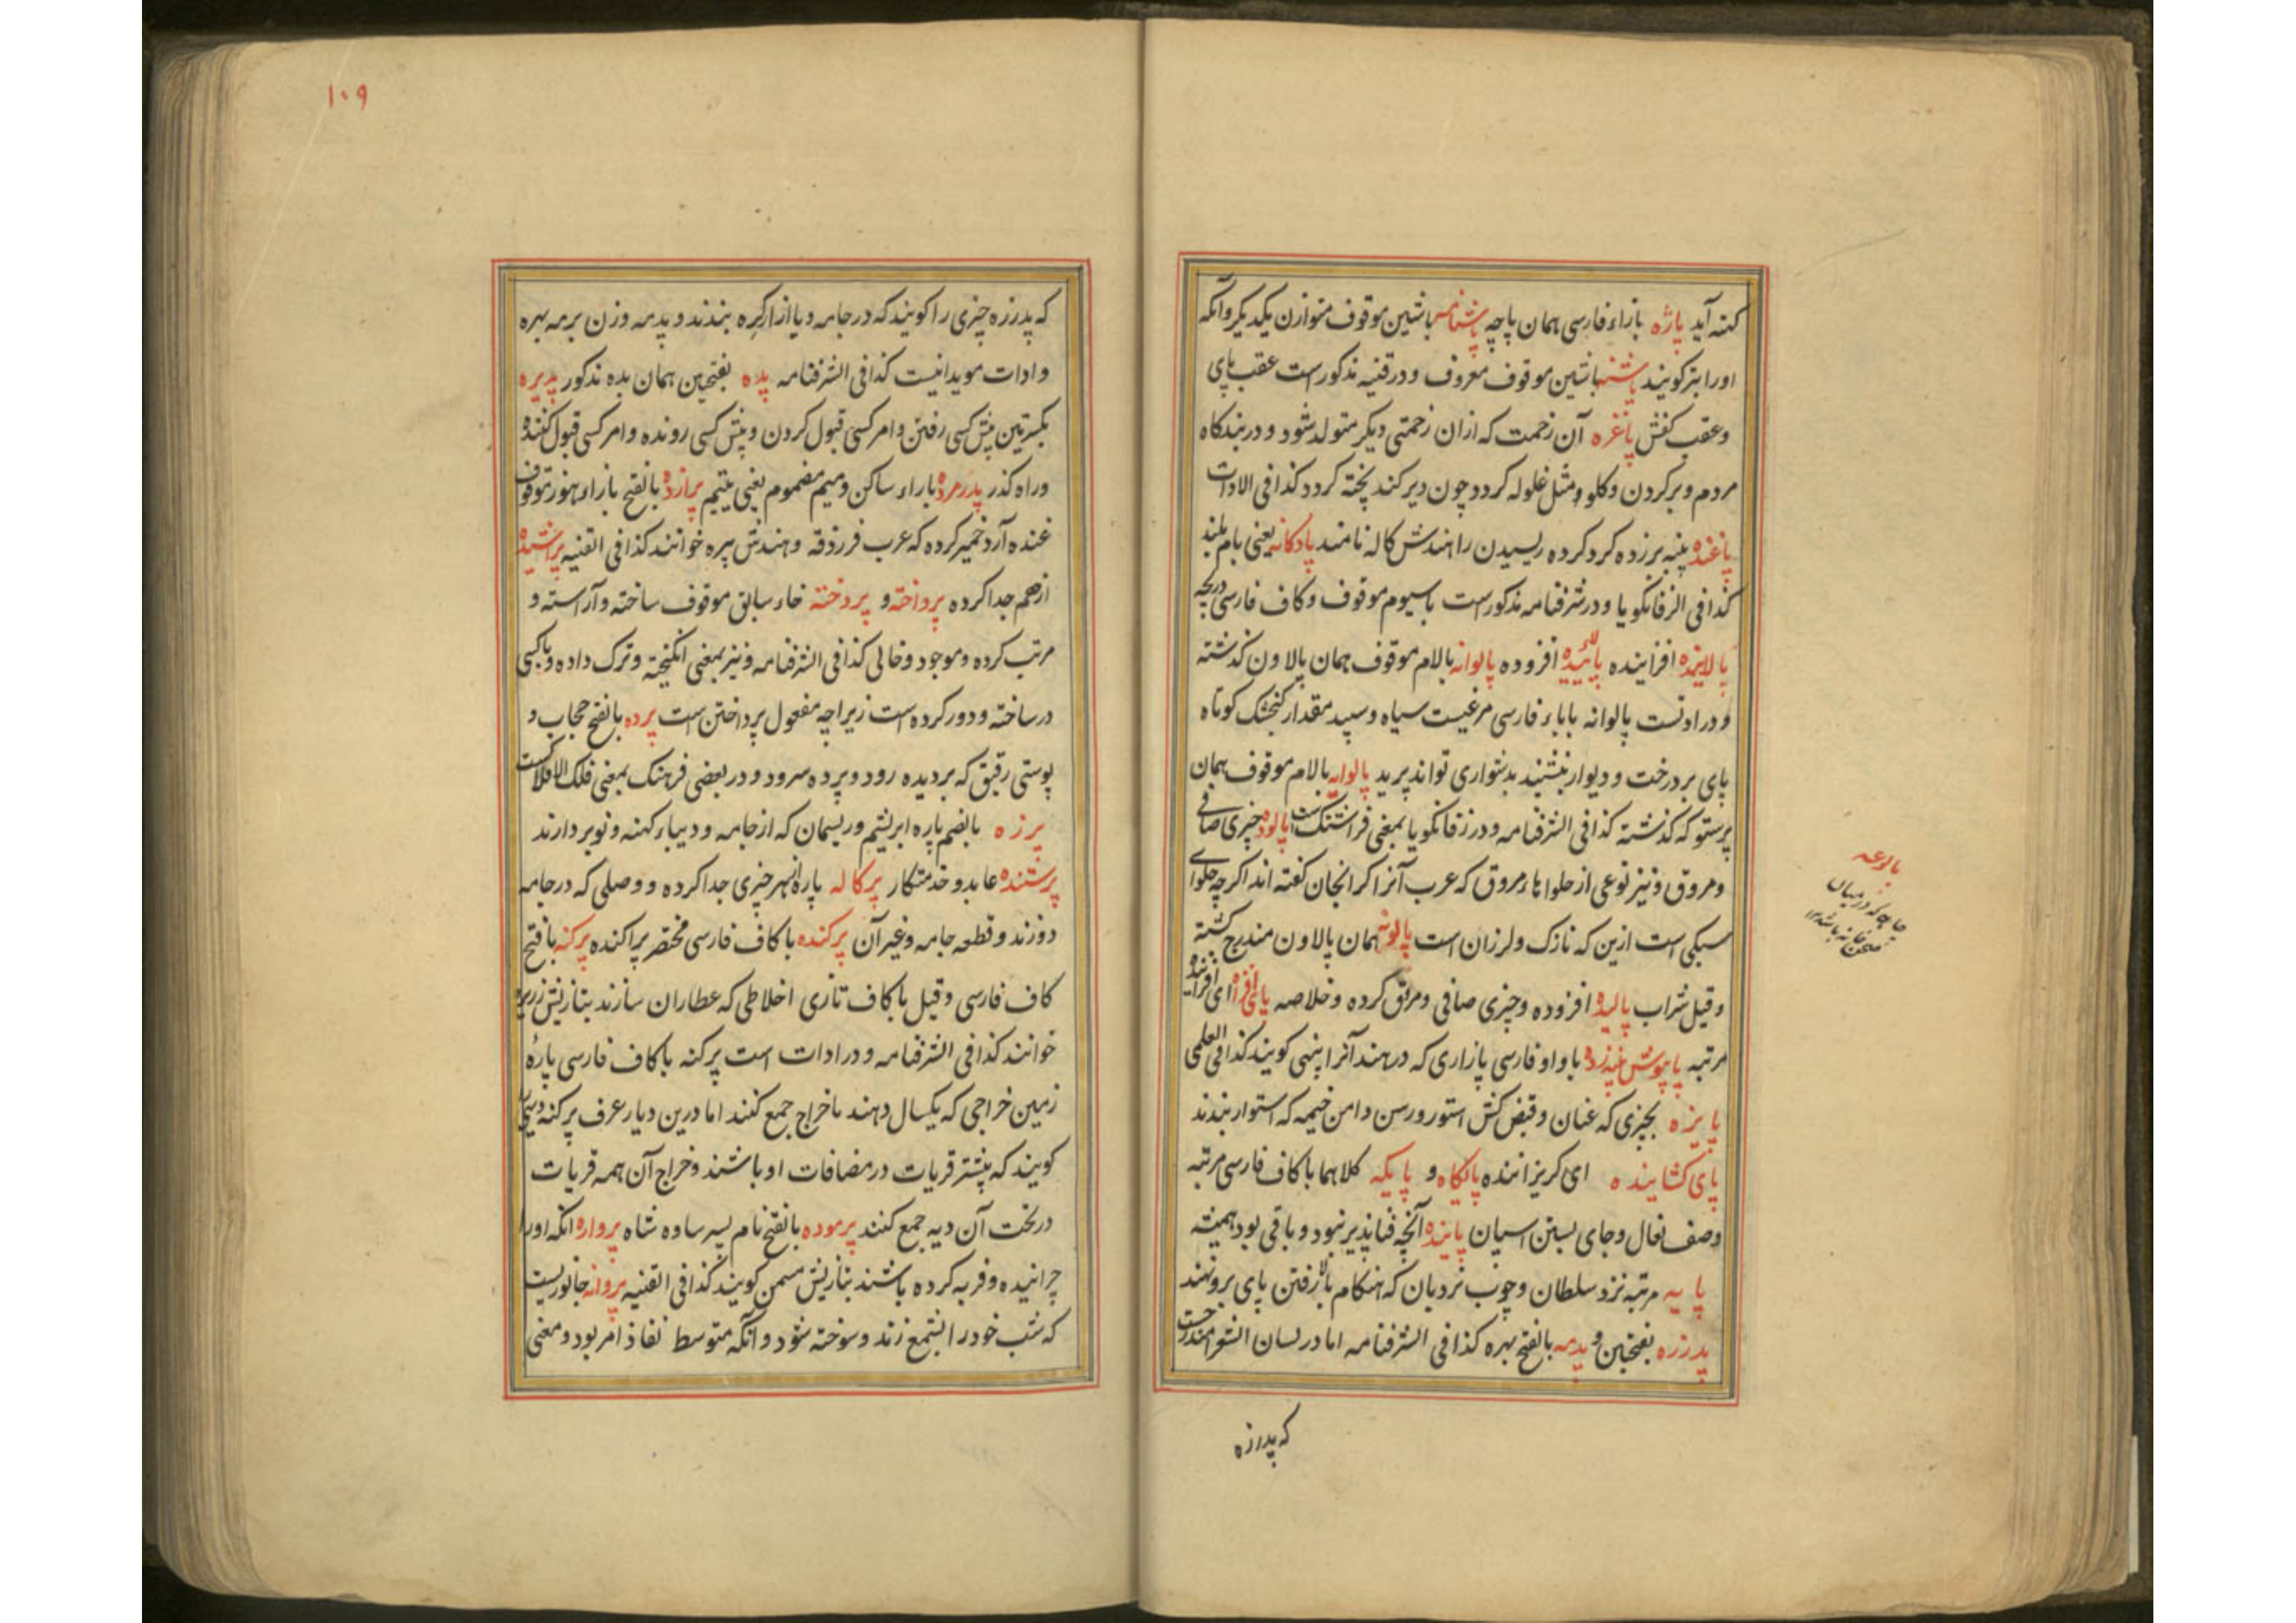 کنه آید پاژه بازاء فارسی همان پاچه پاشنامه باشین موقوف متوازن یکدیگر و آنکه
اورا بتر کویند پاشنه باشین موقوف معروف و در قنیه مذکور است عقب پای
و عقب کفش پاغره آن زحمت که ازان زحمتی دیکر متولد شود و در بندکاه
مردم و بر کردن و کلو و مثل غلوله کردد چون دیر کند پخته کردد کذا فی الادات
پاغنده پنبه برزده کرد کرده ریسیدن را هندش کاله نامند پادکانه یعنی بام بلند
کذا فی الزفانکویا و در شرفنامه مذکور است باسیوم موقوف و کاف فارسی دریچه
پالاینده افزاینده پالائیده افزوده پالوانه بالام موقوف همان پالاون کذشته
و در اداتست پالوانه باباء فارسی مرغیست سیاه و سپید مقدار کنجشک کوتاه
پای بر درخت و دیوار بنشیند بدشواری تواند پرید پالوایه بالام موقوف همان
پرستو که کذشته کذا فی الشرفنامه و در زفانکویا بمعنی فراشتک است پالوده چیزی صافی
و مروق و نیز نوعی از حلواهاء مروق که عرب آنرا کرانجان کفته اند اکرچه حلوای
سبکی است ازین که نازک و لرزان است پالونه همان پالاون مندرج کشته
و قیل شراب پالیده افزوده و چیزی صافی و مروق کرده و خلاصه پای افزاه ای افزاینده
مرتبه پاپوش نیزده باواو فارسی پازاری که در هند آنرا پنهی کویند کذا فی العلمی
پایزه بچیزی که عنان و قبض کنش استور و رسن دامن خیمه که استوار بندند
پای کشاینده ای کریزاننده پایکاه و پایکه کلاهما باکاف فارسی مرتبه
وصف نعال و جای بستن اسپان پاینده آنچه فناپذیر نبود و باقی بود همیشه
پایه مرتبه نزد سلطان و چوب نردبان که هنکام بالا رفتن پای برو نهند
پدرزه بفتحتین و پدمه بالفتح بهره کذا فی الشرفنامه اما در لسان الشعرا مندرجست
که پدرزه
پالوعه
چاهچه که در میان
صحن خانه باشد ۱۲
۱۰۹
که پدرزه چیزی را کویند که در جامه و یا ازار کره بندند و پدمه وزن برمه بهره
و ادات مویدانیست کذا فی الشرفنامه پده بفتحتین همان بده مذکور پذیره
بکسرتین پیش کسی رفتن و امر کسی قبول کردن و پیش کسی رونده و امر کسی قبول کننده
وراه کذر پدرمرده باراء ساکن و میم مضموم یعنی یتیم پرازده بالفتح بازاء هوز موقوف
غنده آرد خمیر کرده که عرب فرزدقه و هندش پیره خوانند کذا فی القنیه پراشیده
ازهم جدا کرده پرداخته و پردخته خاء سابق موقوف ساخته و آراسته و
مرتب کرده و موجود و خالی کذا فی الشرفنامه و نیز بمعنی انکیخته و ترک داده و باکسی
درساخته و دور کرده است زیراچه مفعول پرداختن است پرده بالفتح حجاب و
پوستی رقیق که بر دیده رود و پرده سرود و در بعضی فرهنک بمعنی فلک الافلاک است
پرزه بالضم پاره ابریشم و ریسمان که از جامه و دیباء کهنه و نو بردارند
پرستنده عابد و خدمتکار پرکاله پاره از هر چیزی جدا کرده و وصلی که در جامه
دوزند و قطعه جامه و غیر آن پرکنده باکاف فارسی مختصر پراکنده پرکنه بافتح
کاف فارسی و قیل باکاف تازی اخلاطی که عطاران سازند بتازیش زریره
خوانند کذا فی الشرفنامه و در ادات است پرکنه باکاف فارسی پارهٔ
زمین خراجی که یکسال دهند باخراج جمع کنند اما درین دیار عرف پرکنه دیهی را
کویند که بیشتر قریات در مضافات او باشند و خراج آن همه قریات
در تخت آن دیه جمع کنند پرموده بالفتح نام پسر ساوه شاه پرواره انکه اورا
چرانیده و فربه کرده باشند بتازیش مسمن کویند کذا فی القنیه پروانه جانوریست
که شب خود را بشمع زند و سوخته شود و آنکه متوسط نفاذ امر بود و معنی